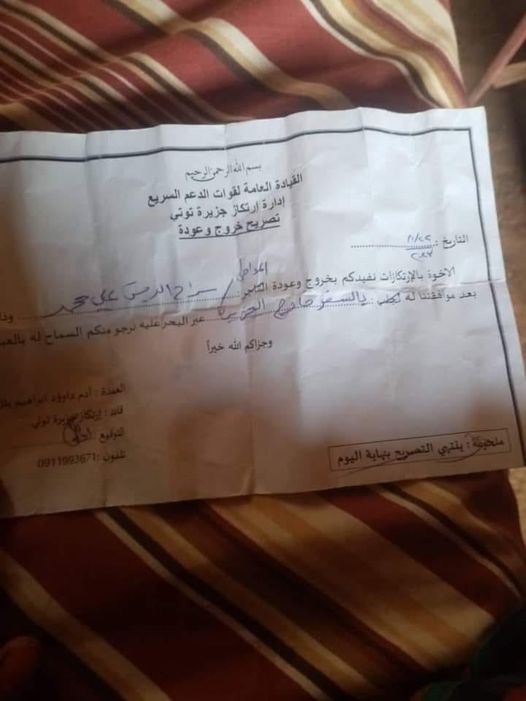 بسم الله الرحمن الرحيم
القيادة العامة لقوات الدعم السريع
إدارة إرتكاز جزيرة توتي
تصريح خروج وعودة
التاريخ :
الاخوة بالإرتكازات نفيدكم بخروج وعودة التاجر المواطن / سراج الدين علي محمد وذلك
بعد موافقتنا له لطلب : بالسفر خارج الجزيرة عبر البحر عليه نرجو منكم السماح له
وجزاكم الله خيراً
العمدة : آدم داوؤد ابراهيم
قائد : إرتكاز جزيرة توتي
التوقيع :
تلفون : 0911993671
ملحوظة : ينتهي التصريح بنهاية اليوم